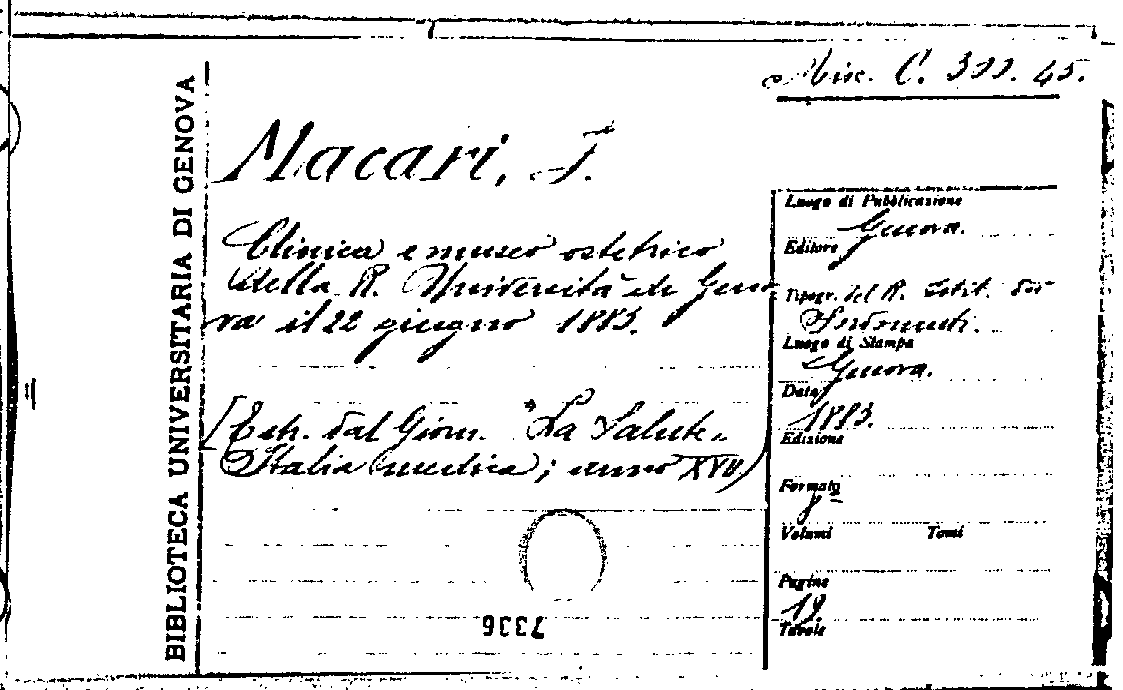 Misc. C. 399. 45.
BIBLIOTECA UNIVERSITARIA DI GENOVA
Macari, F.
Clinica e museo ostetrico
della R. Università di Geno
va il 22 giugno 1883.
[Estr. dal Giorn. "La Salute„
Italia medica; anno XVII)
7336
Luogo di Pubblicazione
Genova.
Editore
Tipogr. del R. Istit. Sor
Sordomuti.
Luogo di Stampa
Genova.
Data
1883.
Edizione
Formato
8º
Volumi Tomi
Pagine
19.
Tavole